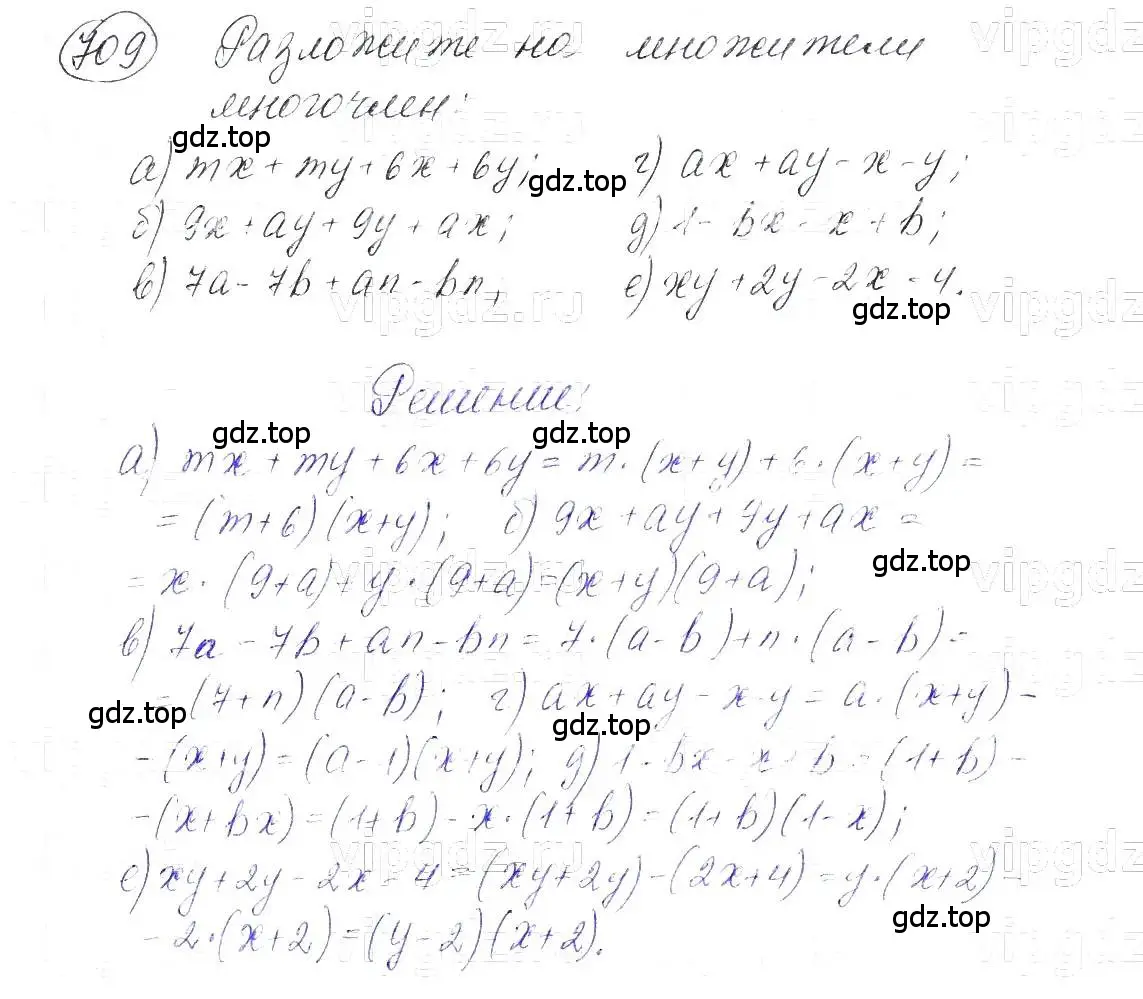 709 Разложите на множители
многочлен:
а) mx + my + 6x + 6y; г) ax + ay - x - y;
б) 9x + ay + 9y + ax; д) 1 - bx - x + b;
в) 7a - 7b + an - bn; е) xy + 2y - 2x - 4.
Решение:
а) mx + my + 6x + 6y = m·(x+y) + 6·(x+y) =
= (m+6)(x+y); б) 9x + ay + 9y + ax =
= x·(9+a) + y·(9+a) = (x+y)(9+a);
в) 7a - 7b + an - bn = 7·(a-b) + n·(a-b) =
= (7+n)(a-b); г) ax + ay - x - y = a·(x+y) -
- (x+y) = (a-1)(x+y); д) 1 - bx - x + b = (1+b) -
- (x+bx) = (1+b) - x·(1+b) = (1+b)(1-x);
е) xy + 2y - 2x - 4 = (xy+2y) - (2x+4) = y·(x+2) -
- 2·(x+2) = (y-2)(x+2).
gdz.top
gdz.top
gdz.top
gdz.top
gdz.top
gdz.top
gdz.top
gdz.top
gdz.top
vipgdz.ru
vipgdz